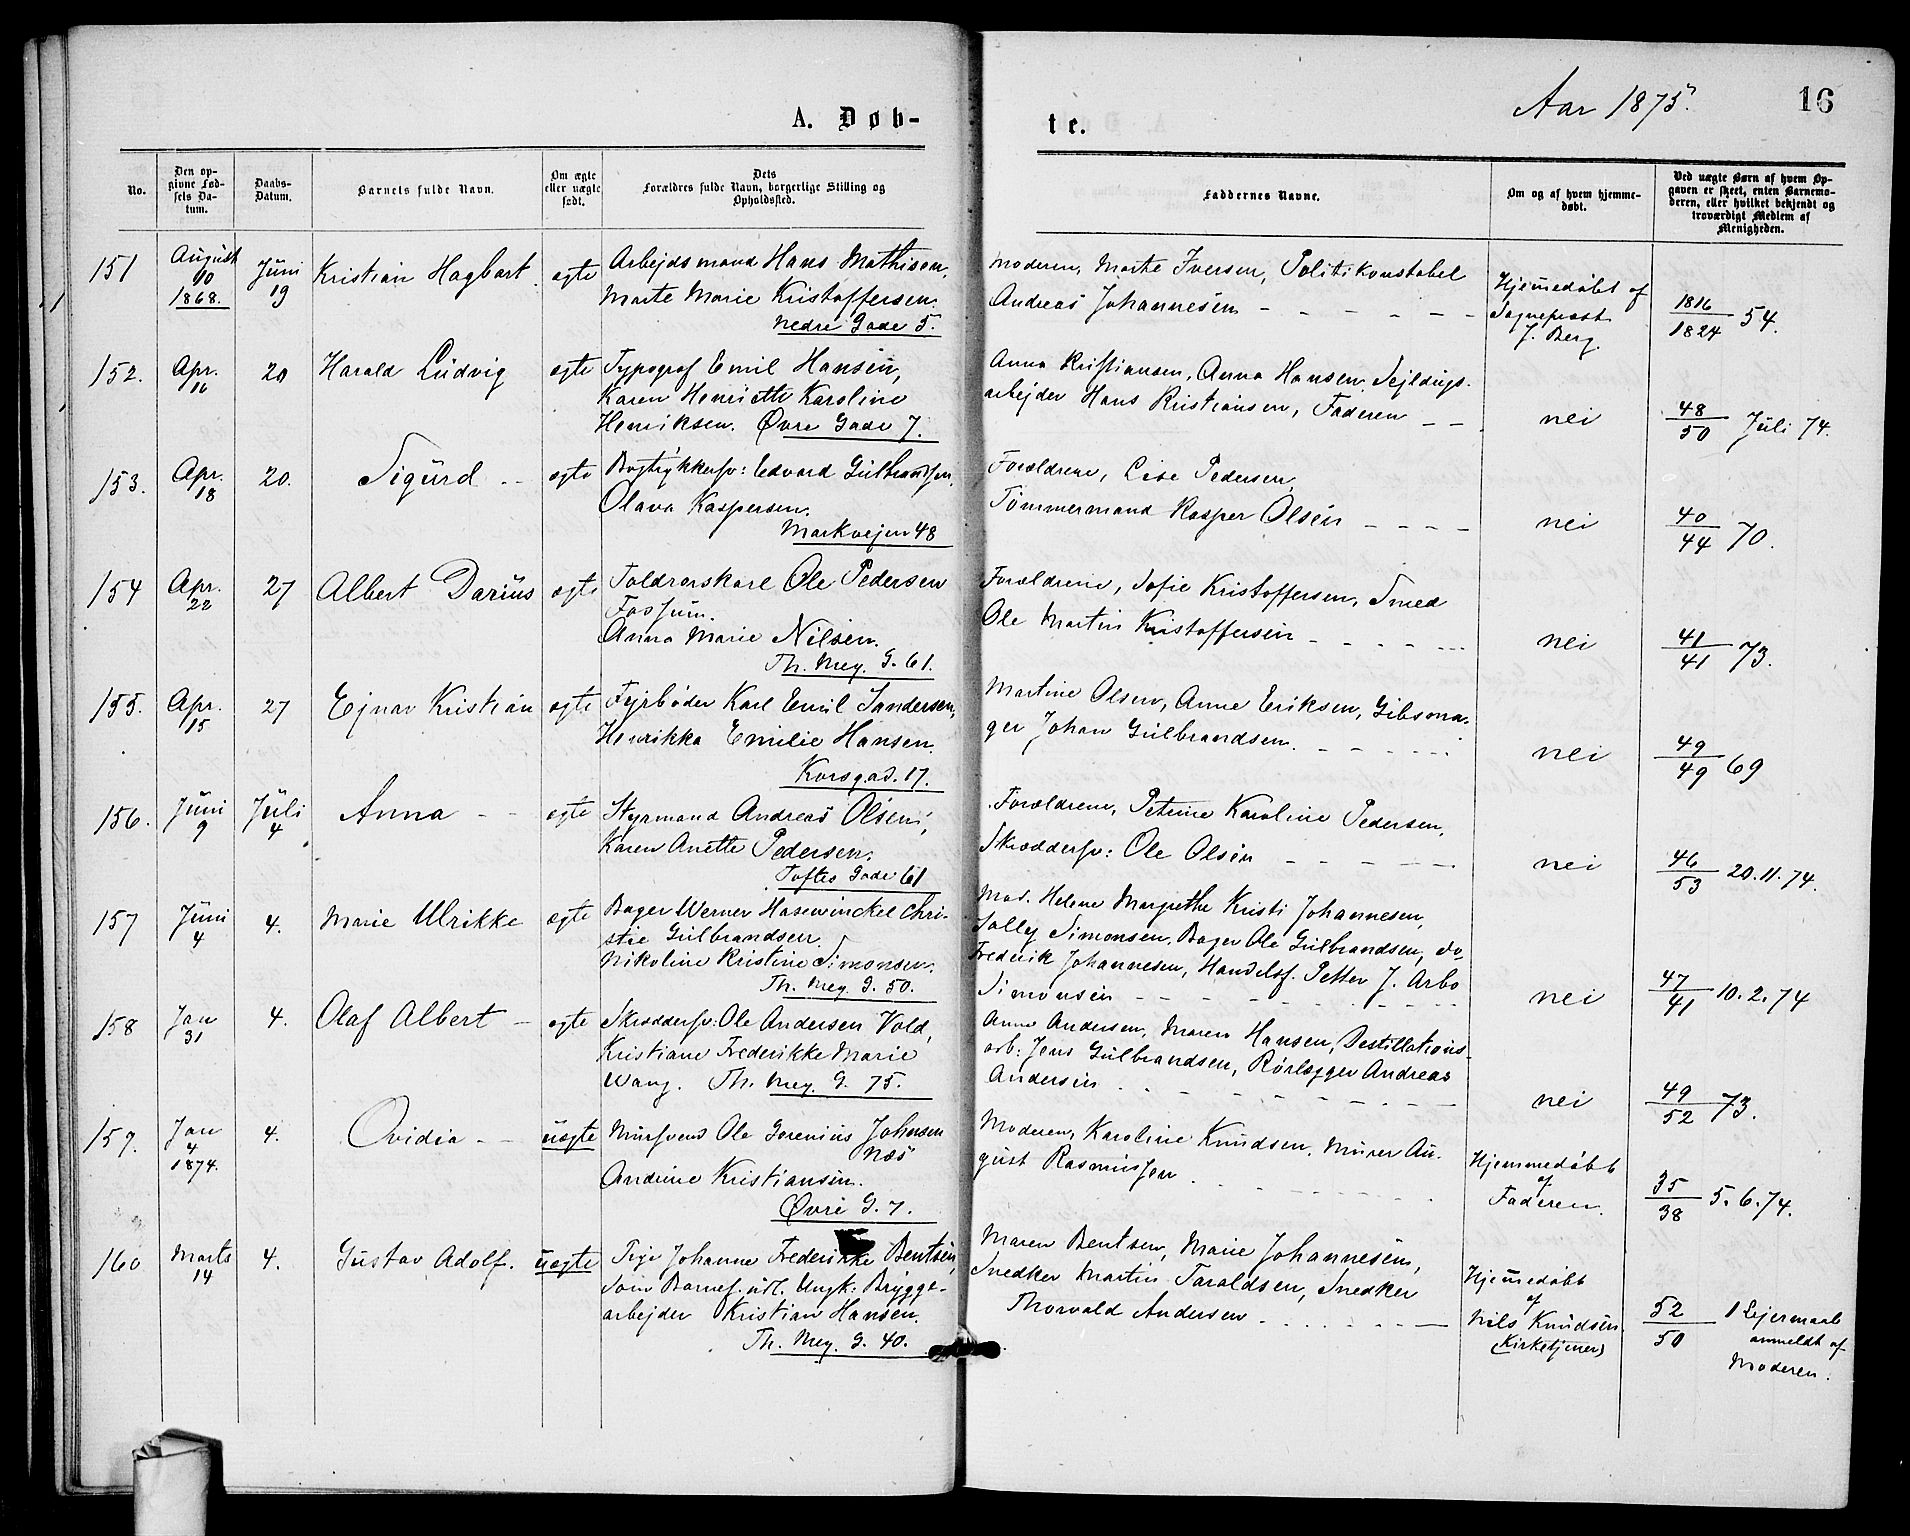 Aar 1875. 16
A. Døb-
te.
No.
Den op-
givne Fød-
sels Da-
tum.
Daabs-
Datum.
Barnets fulde Navn.
Om ægte
eller uægte
født.
Dets
Forældres fulde Navn, borgerlige Stilling og
Opholdssted.
Faddernes Navne.
Om og af hvem hjemme-
døbt.
Ved uægte Børn af hvem Op-
gaven er skeet, enten Barnemo-
deren, eller hvilket bekjendt og
troværdigt Medlem af
Menigheden.
151
August
10
1868.
Juni
19
Kristian Hagbart.
ægte
Arbejdsmand Hans Mathisen,
Marte Marie Kristoffersen.
Nedre Gade 5.
Moderen, Marte Iversen, Politikonstabel
Andreas Johannesen
Hjemmedøbt af
Sognepræst
J. Berg.
1816
1824 54.
152.
Apr.
16
20
Harald Ludvig
ægte
Typograf Emil Hansen,
Karen Henriette Karoline
Henriksen. Øvre Gade 7.
Anna Kristiansen, Anna Hansen, Sejldugs-
arbejder Hans Kristiansen, Faderen
nei
48
50 Juli 74.
153.
Apr.
18
20.
Sigurd
ægte
Bogtrykkersv: Edvard Gulbrandsen,
Olava Kaspersen.
Markvejen 48
Forældrene, Lise Pedersen,
Tømmermand Kasper Olsen
nei
40
44 70.
154
Apr.
22
27
Albert Darius
ægte
Toldrorskarl Ole Pedersen
Fossum.
Anna Marie Nilsen.
Th. Mey. G. 61.
Forældrene, Sofie Kristoffersen, Smed
Ole Martin Kristoffersen
nei
41
41 73.
155.
Apr.
15
27
Ejnar Kristian
ægte
Fyrbøder Karl Emil Sandersen,
Henrikka Emilie Hansen.
Korsgad. 17.
Martine Olsen, Anne Eriksen, Gibsma-
ger Johan Gulbrandsen.
nei
49
49 69
156.
Juni
9
Juli
4
Anna
ægte
Styrmand Andreas Olsen,
Karen Anette Pedersen.
Toftes Gade 61
Forældrene, Petrine Karoline Pedersen,
Skræddersv: Ole Olsen
nei
46
53 20.11.74.
157
Juni
4
4.
Marie Ulrikke
ægte
Bager Werner Hasewinckel Chri-
stie Gulbrandsen.
Nikoline Kristine Simonsen.
Th. Mey. G. 50.
Mad. Helene Margrethe Kristi Johannesen,
Sally Simonsen, Bager Ole Gulbrandsen, do
Frederik Johannesen, Handelsf. Petter J. Arbo
Simonsen
nei
47
41 10.2.74
158
Jan
31
4.
Olaf Albert
ægte
Skræddersv: Ole Andersen Vold,
Kristiane Frederikke Marie
Wang. Th. Mey. G. 75.
Anne Andersen, Maren Hansen, Destillations-
arb: Jens Gulbrandsen, Rørlægger Andreas
Andersen
nei
49
52 73.
159.
Jan
4
1874.
4.
Ovidia
uægte
Mursvend Ole Gorenius Johnsen
Næs
Andrine Kristiansen.
Øvre G. 7.
Moderen, Karoline Knudsen, Murer Au-
gust Rasmussen
Hjemmedøbt
af
Faderen.
35
38 5.6.74.
160
Marts
14
4.
Gustav Adolf.
uægte
Pige Johanne Frederikke Bentsen,
som Barnef. udl. Ungk: Brygge-
arbejder Kristian Hansen.
Th. Mey. G. 40.
Maren Bentsen, Marie Johannesen,
Snedker Martin Taraldsen, Snedker
Thorvald Andersen
Hjemmedøbt
af
Nils Knudsen
(Kirketjener)
52
50 1 Lejermaal
anmeldt af
Moderen.